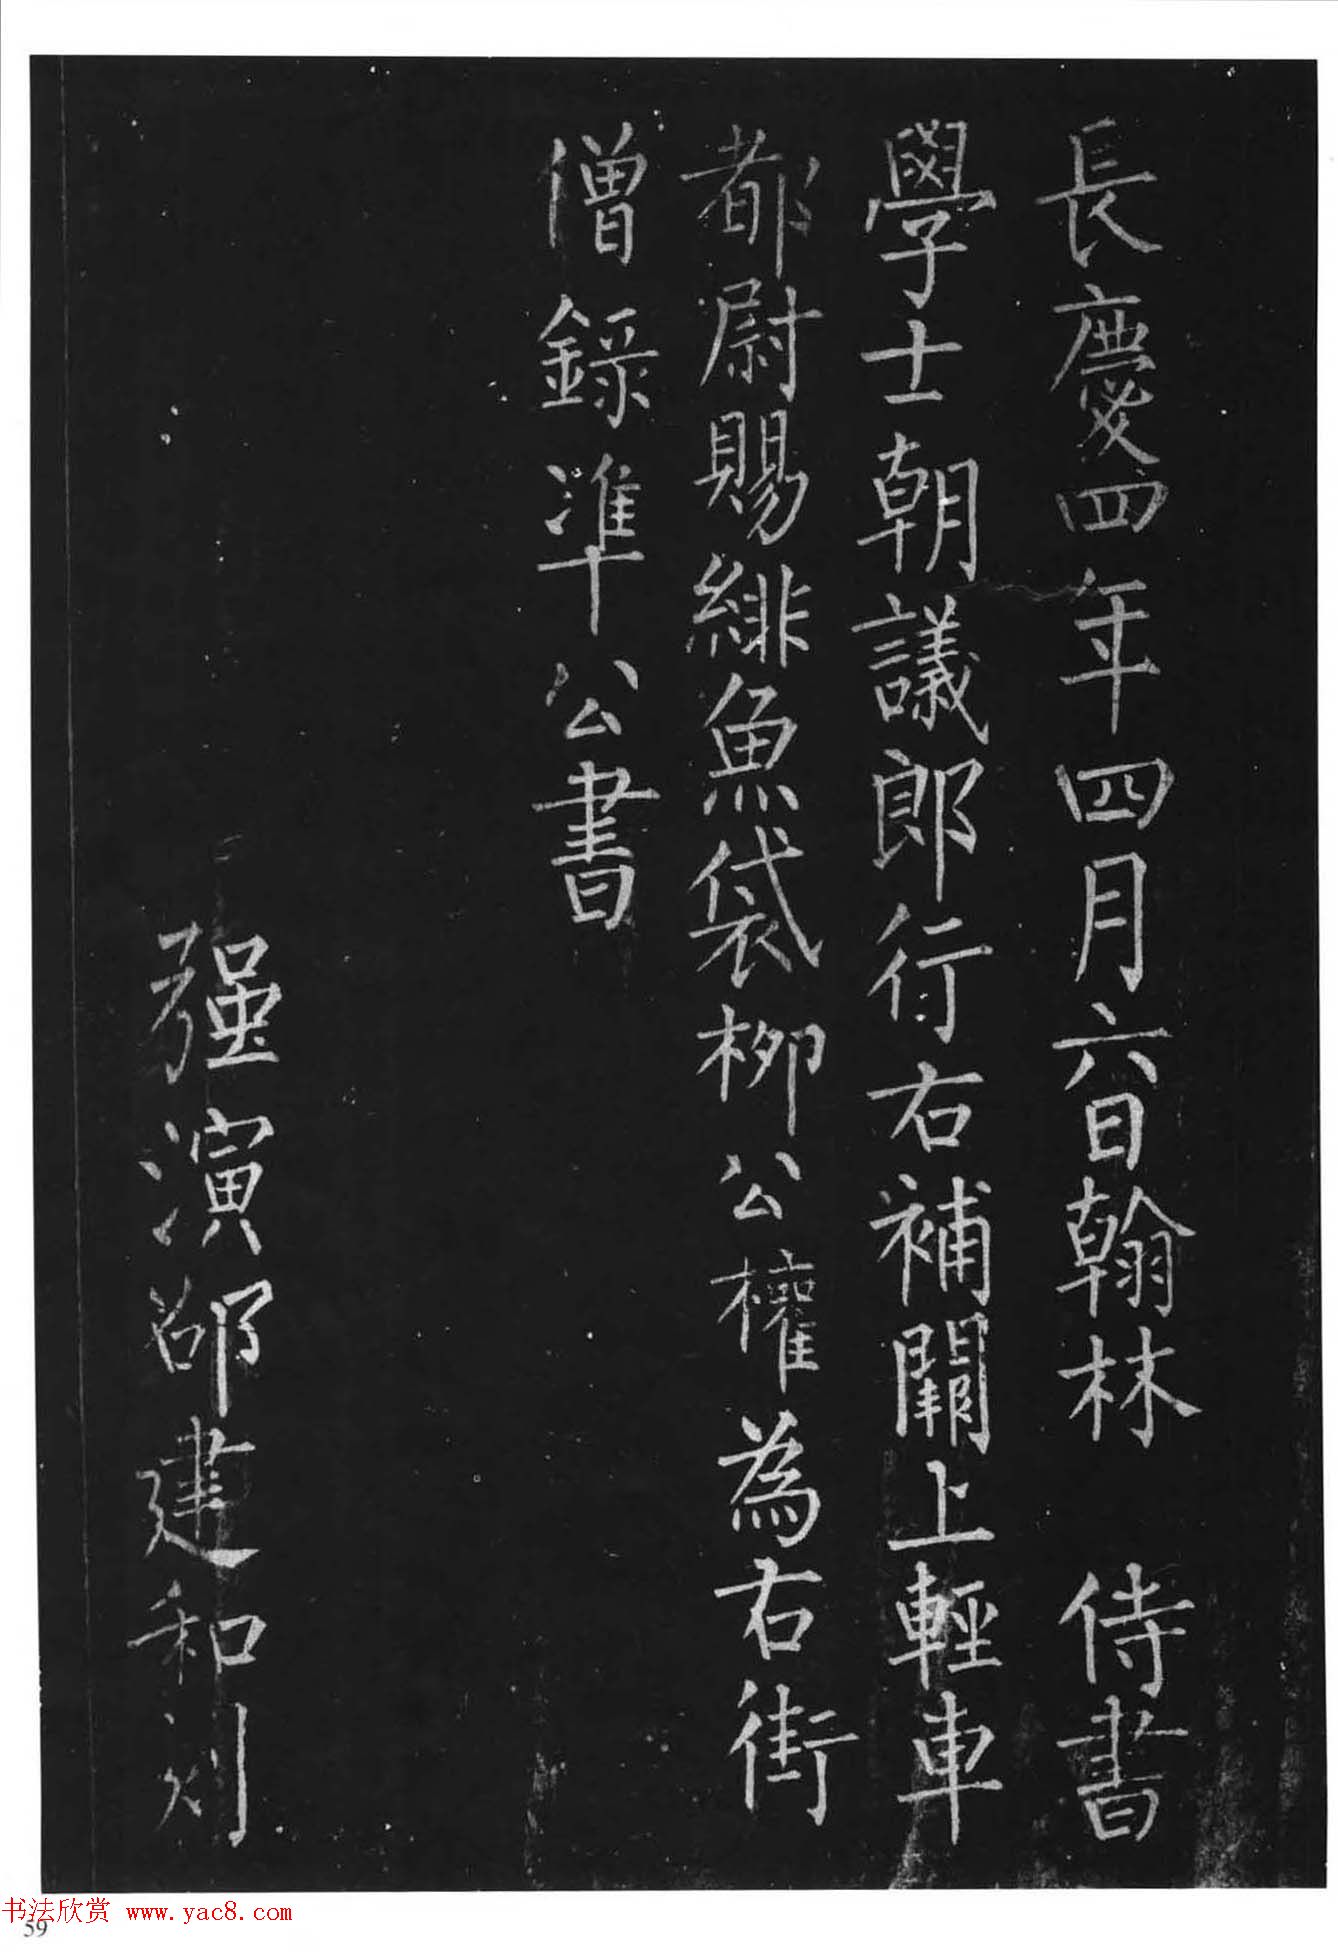 長慶四年四月六日翰林 侍書
學士朝議郎行右補闕上輕車
都尉賜緋魚袋柳公權為右街
僧錄準公書
强演邵建和刻
书法欣赏 www.yac8.com
59